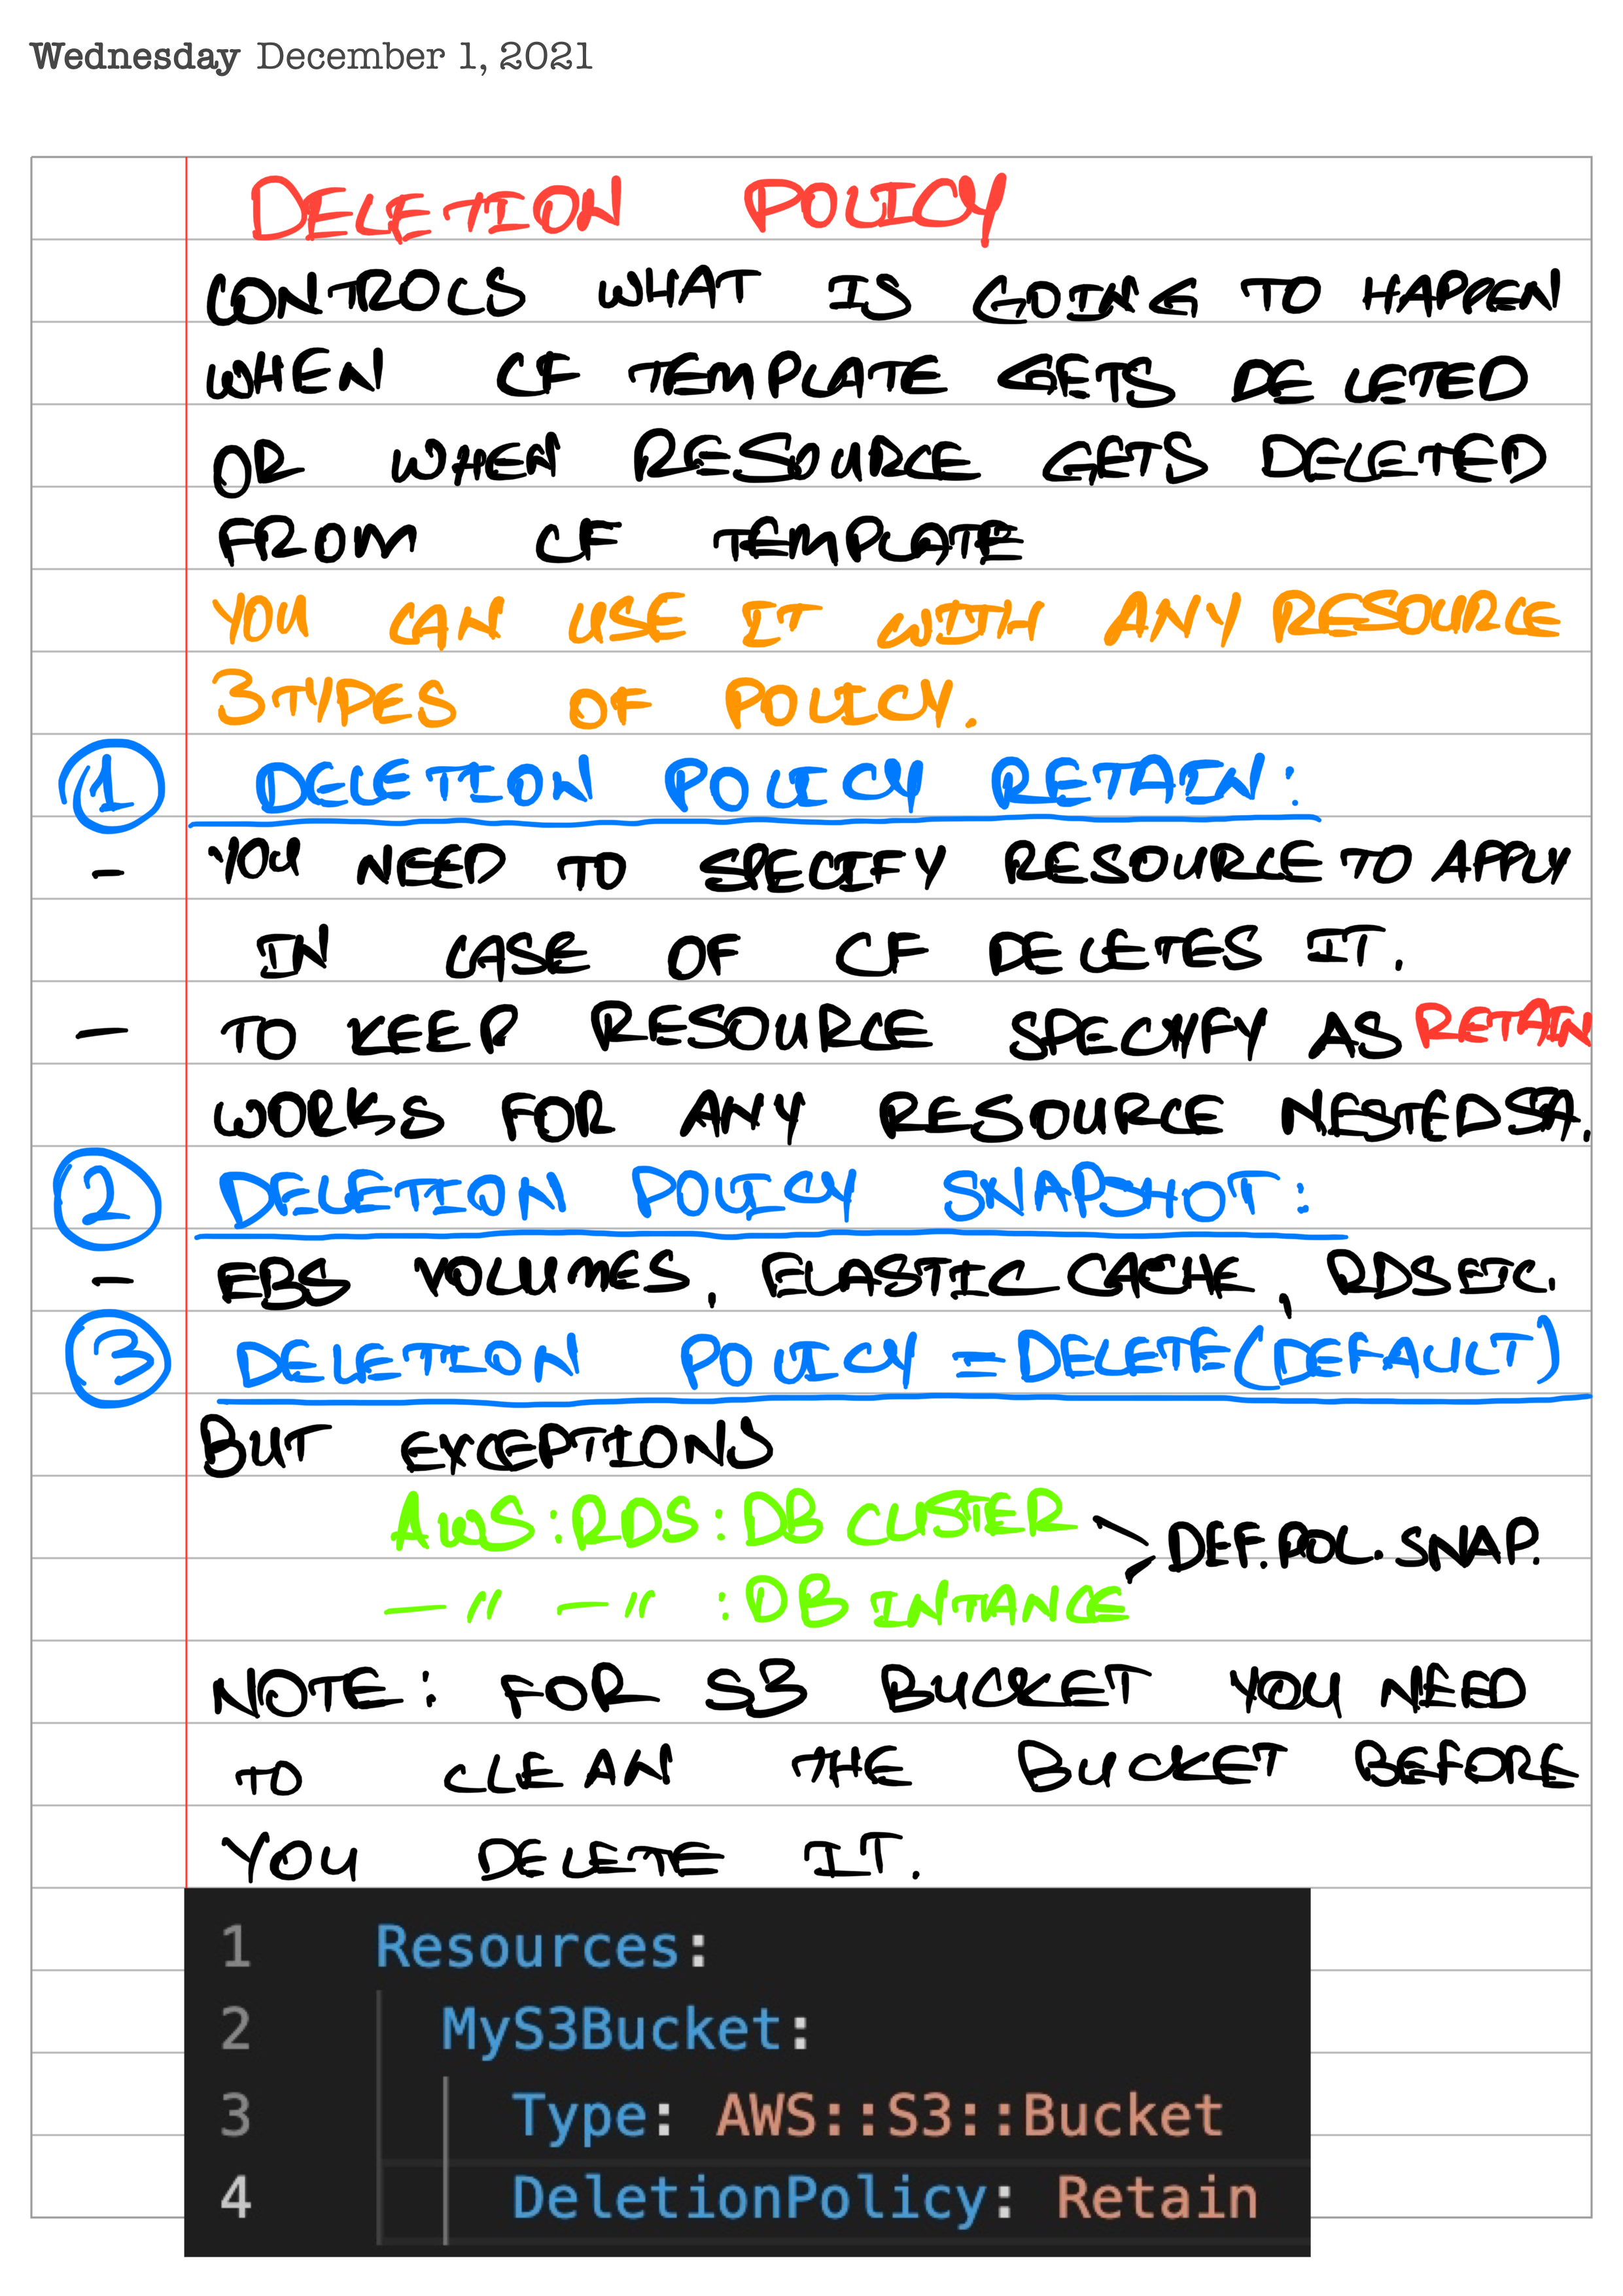 Wednesday December 1, 2021
DELETION POLICY
CONTROLS WHAT IS GOING TO HAPPEN
WHEN CF TEMPLATE GETS DELETED
OR WHEN RESOURCE GETS DELETED
FROM CF TEMPLATE
YOU CAN USE IT WITH ANY RESOURCE
3 TYPES OF POLICY.
1 DELETION POLICY RETAIN:
- YOU NEED TO SPECIFY RESOURCE TO APPLY
IN CASE OF CF DELETES IT.
- TO KEEP RESOURCE SPECIFY AS RETAIN
WORKS FOR ANY RESOURCE NESTED ST.
2 DELETION POLICY SNAPSHOT:
- EBS VOLUMES, ELASTIC CACHE, RDS ETC.
3 DELETION POLICY = DELETE (DEFAULT)
BUT EXCEPTIONS
AWS:RDS:DB CLUSTER
DEF. POL. SNAP.
—〃 —〃 :DB INTANCE
NOTE: FOR S3 BUCKET YOU NEED
TO CLEAN THE BUCKET BEFORE
YOU DELETE IT.
1 Resources:
2 MyS3Bucket:
3 Type: AWS::S3::Bucket
4 DeletionPolicy: Retain